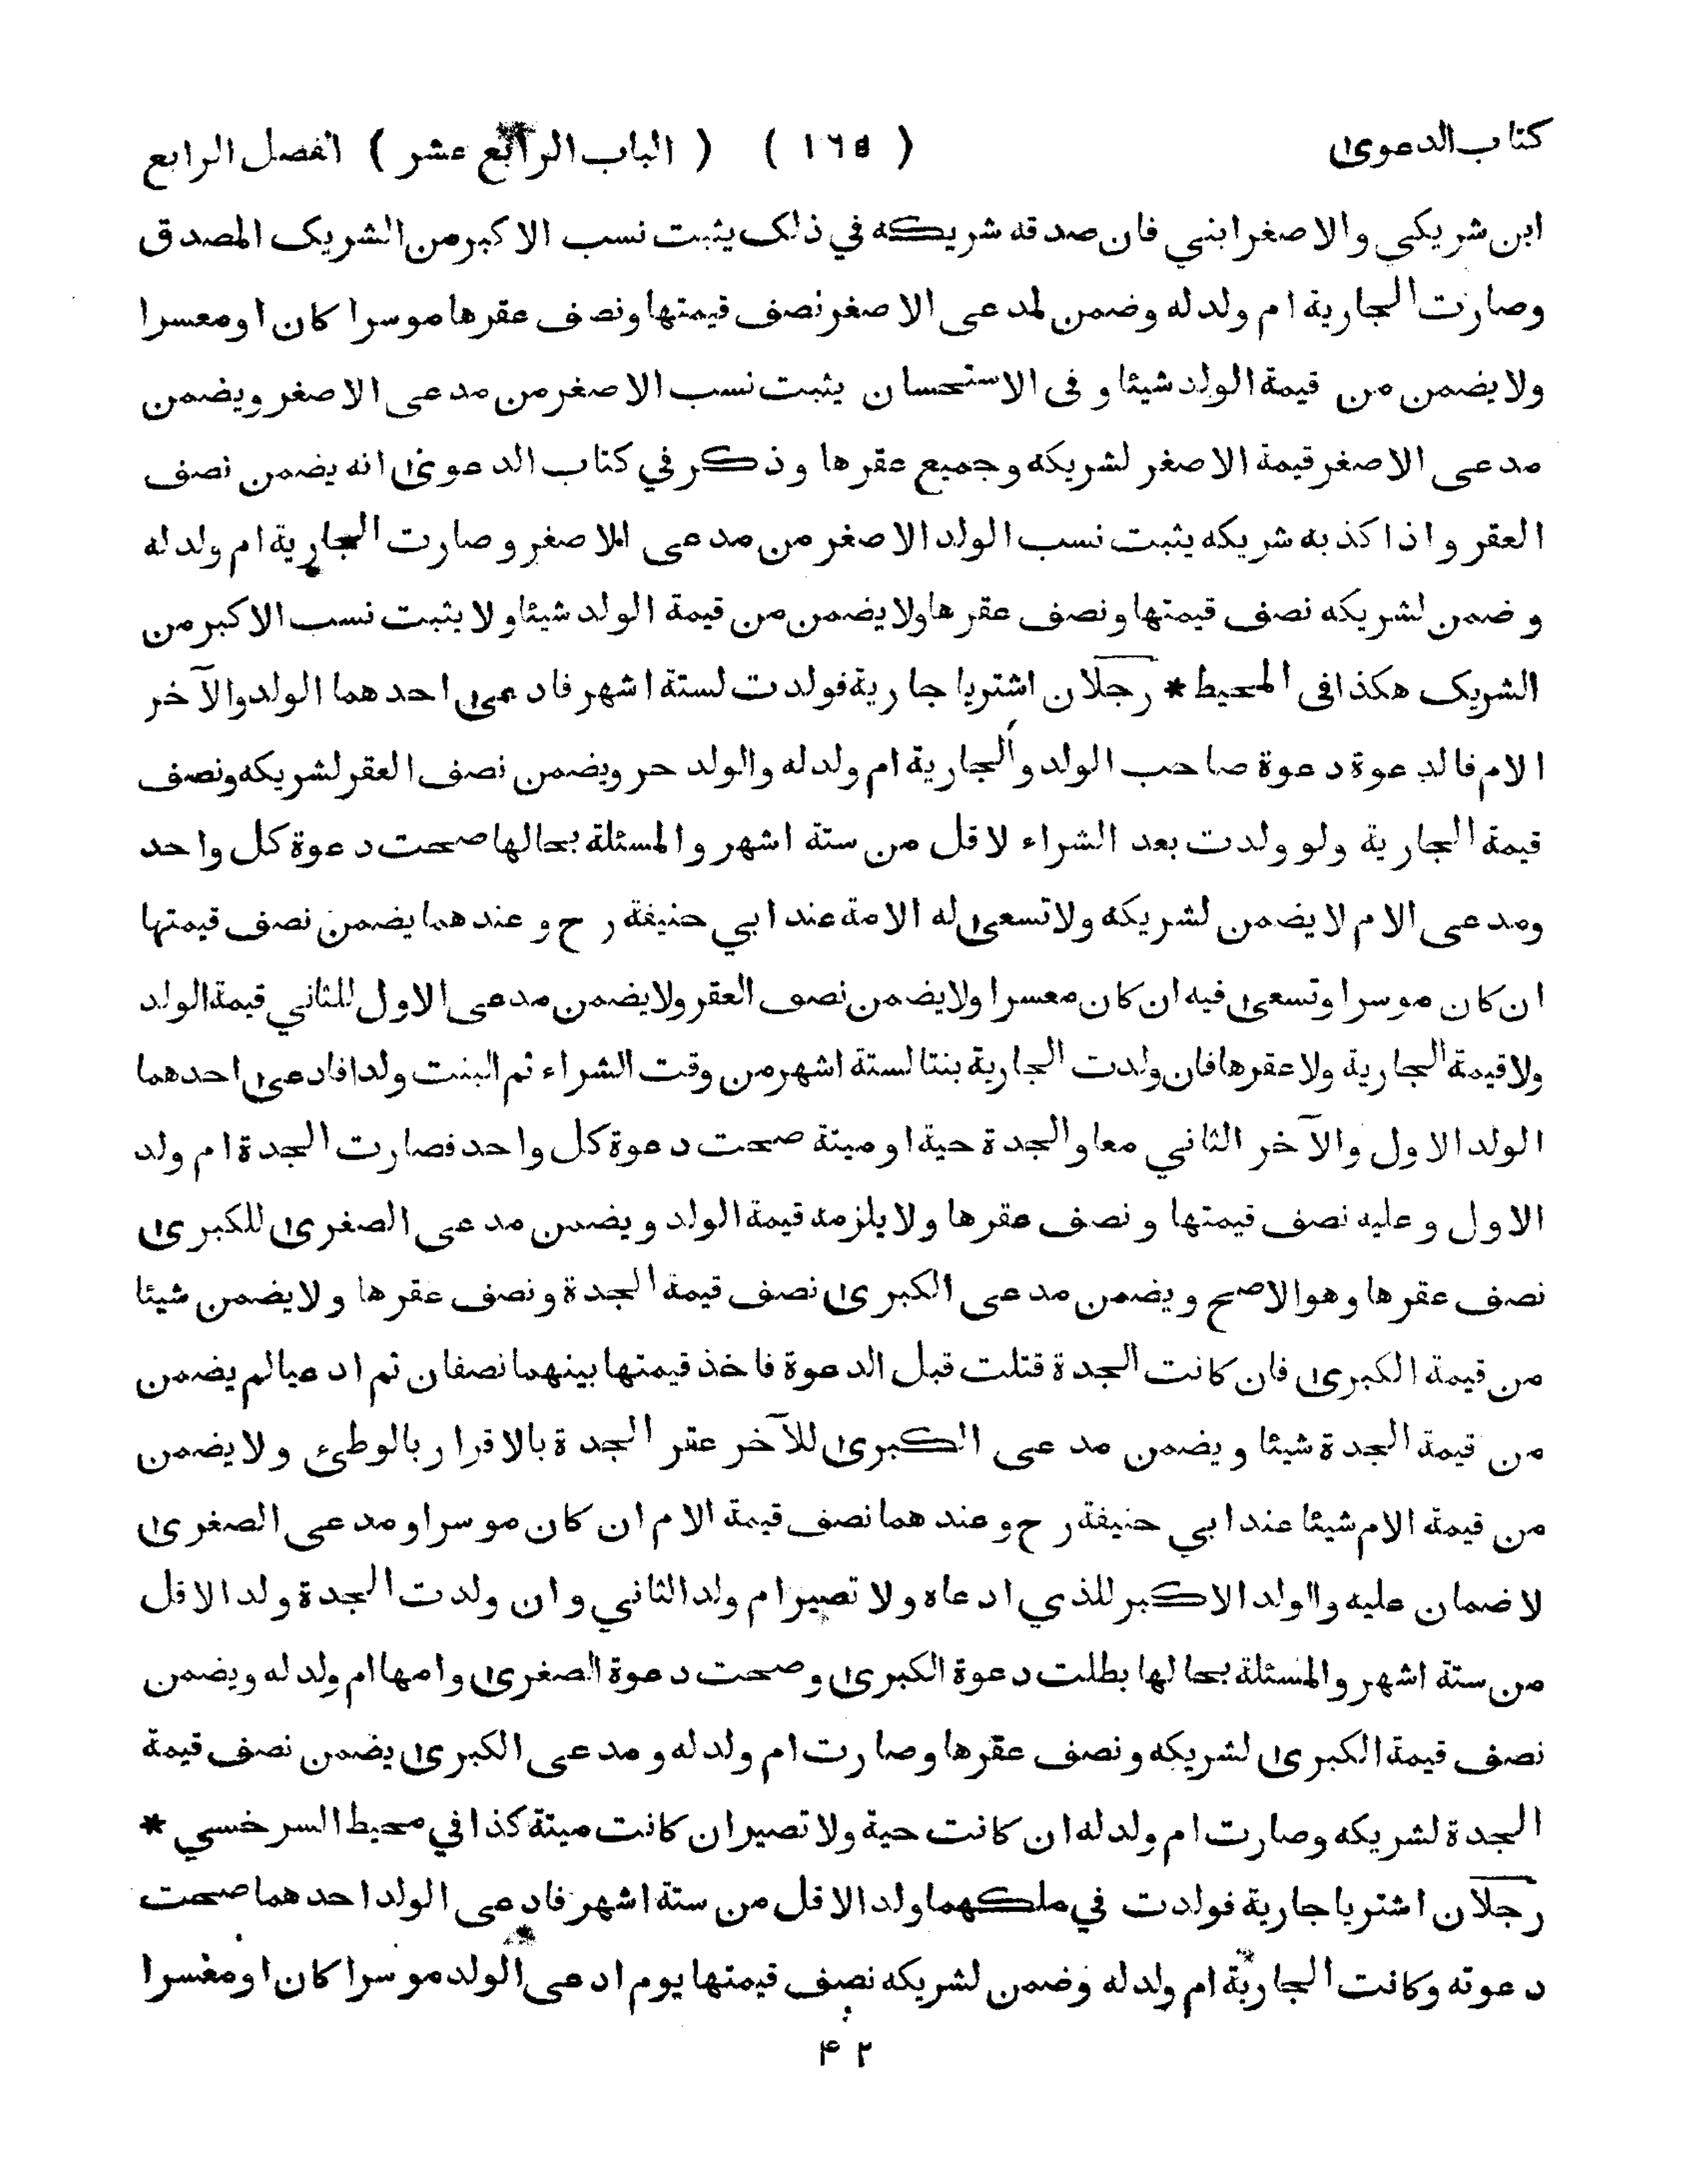 كتاب الدعوىٰ ( ١٦٥ ) ( الباب الرابع عشر ) الفصل الرابع
ابن شريكي والاصغر ابني فان صدقه شريكه في ذلك يثبت نسب الاكبر من الشريك المصدق
وصارت الجارية ام ولد له وضمن لمدعى الاصغر نصف قيمتها ونصف عقرها موسرا كان او معسرا
ولا يضمن من قيمة الولد شيئا و فى الاستحسان يثبت نسب الاصغر من مدعى الاصغر ويضمن
مدعى الاصغر قيمة الاصغر لشريكه وجميع عقرها وذكر في كتاب الدعوىٰ انه يضمن نصف
العقر واذا كذبه شريكه يثبت نسب الولد الاصغر من مدعى الاصغر وصارت الجارية ام ولد له
وضمن لشريكه نصف قيمتها ونصف عقرها ولا يضمن من قيمة الولد شيئا ولا يثبت نسب الاكبر من
الشريك هكذا فى المحيط * رجلان اشتريا جارية فولدت لستة اشهر فادعىٰ احدهما الولد والآخر
الام فالدعوة دعوة صاحب الولد والجارية ام ولد له والولد حر ويضمن نصف العقر لشريكه ونصف
قيمة الجارية ولو ولدت بعد الشراء لاقل من ستة اشهر والمسئلة بحالها صحت دعوة كل واحد
ومدعى الام لا يضمن لشريكه ولا تسعىٰ له الامة عند ابي حنيفة رح وعندهما يضمن نصف قيمتها
ان كان موسرا وتسعىٰ فيه ان كان معسرا ولا يضمن نصف العقر ولا يضمن مدعى الاول للثاني قيمة الولد
ولا قيمة الجارية ولا عقرها فان ولدت الجارية بنتا لستة اشهر من وقت الشراء ثم البنت ولدا فادعىٰ احدهما
الولد الاول والآخر الثاني معا والجدة حية او ميتة صحت دعوة كل واحد فصارت الجدة ام ولد
الاول وعليه نصف قيمتها ونصف عقرها ولا يلزمه قيمة الولد ويضمن مدعى الصغرىٰ للكبرىٰ
نصف عقرها وهو الاصح ويضمن مدعى الكبرىٰ نصف قيمة الجدة ونصف عقرها ولا يضمن شيئا
من قيمة الكبرىٰ فان كانت الجدة قتلت قبل الدعوة فاخذ قيمتها بينهما نصفان ثم ادعيا لم يضمن
من قيمة الجدة شيئا ويضمن مدعى الكبرىٰ للآخر عقر الجدة بالاقرار بالوطئ ولا يضمن
من قيمة الام شيئا عند ابي حنيفة رح وعندهما نصف قيمة الام ان كان موسرا ومدعى الصغرىٰ
لا ضمان عليه والولد الاكبر للذي ادعاه ولا تصير ام ولد الثاني وان ولدت الجدة ولدا لاقل
من ستة اشهر والمسئلة بحالها بطلت دعوة الكبرىٰ وصحت دعوة الصغرىٰ وامها ام ولد له ويضمن
نصف قيمة الكبرىٰ لشريكه ونصف عقرها وصارت ام ولد له ومدعى الكبرىٰ يضمن نصف قيمة
الجدة لشريكه وصارت ام ولد له ان كانت حية ولا تصير ان كانت ميتة كذا في محيط السرخسي *
رجلان اشتريا جارية فولدت في ملكهما ولدا لاقل من ستة اشهر فادعى الولد احدهما صحت
دعوته وكانت الجارية ام ولد له وضمن لشريكه نصف قيمتها يوم ادعى الولد موسرا كان او معسرا
۴۲